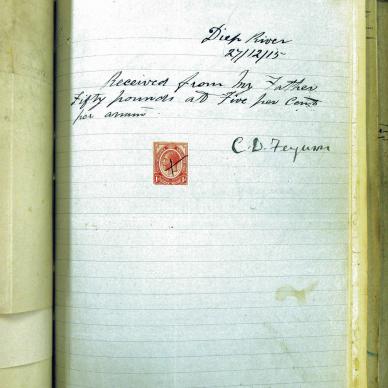 Diep River
27/12/15
Received from my Father
Fifty pounds at Five per Cent
per anum
C. D. Ferguson